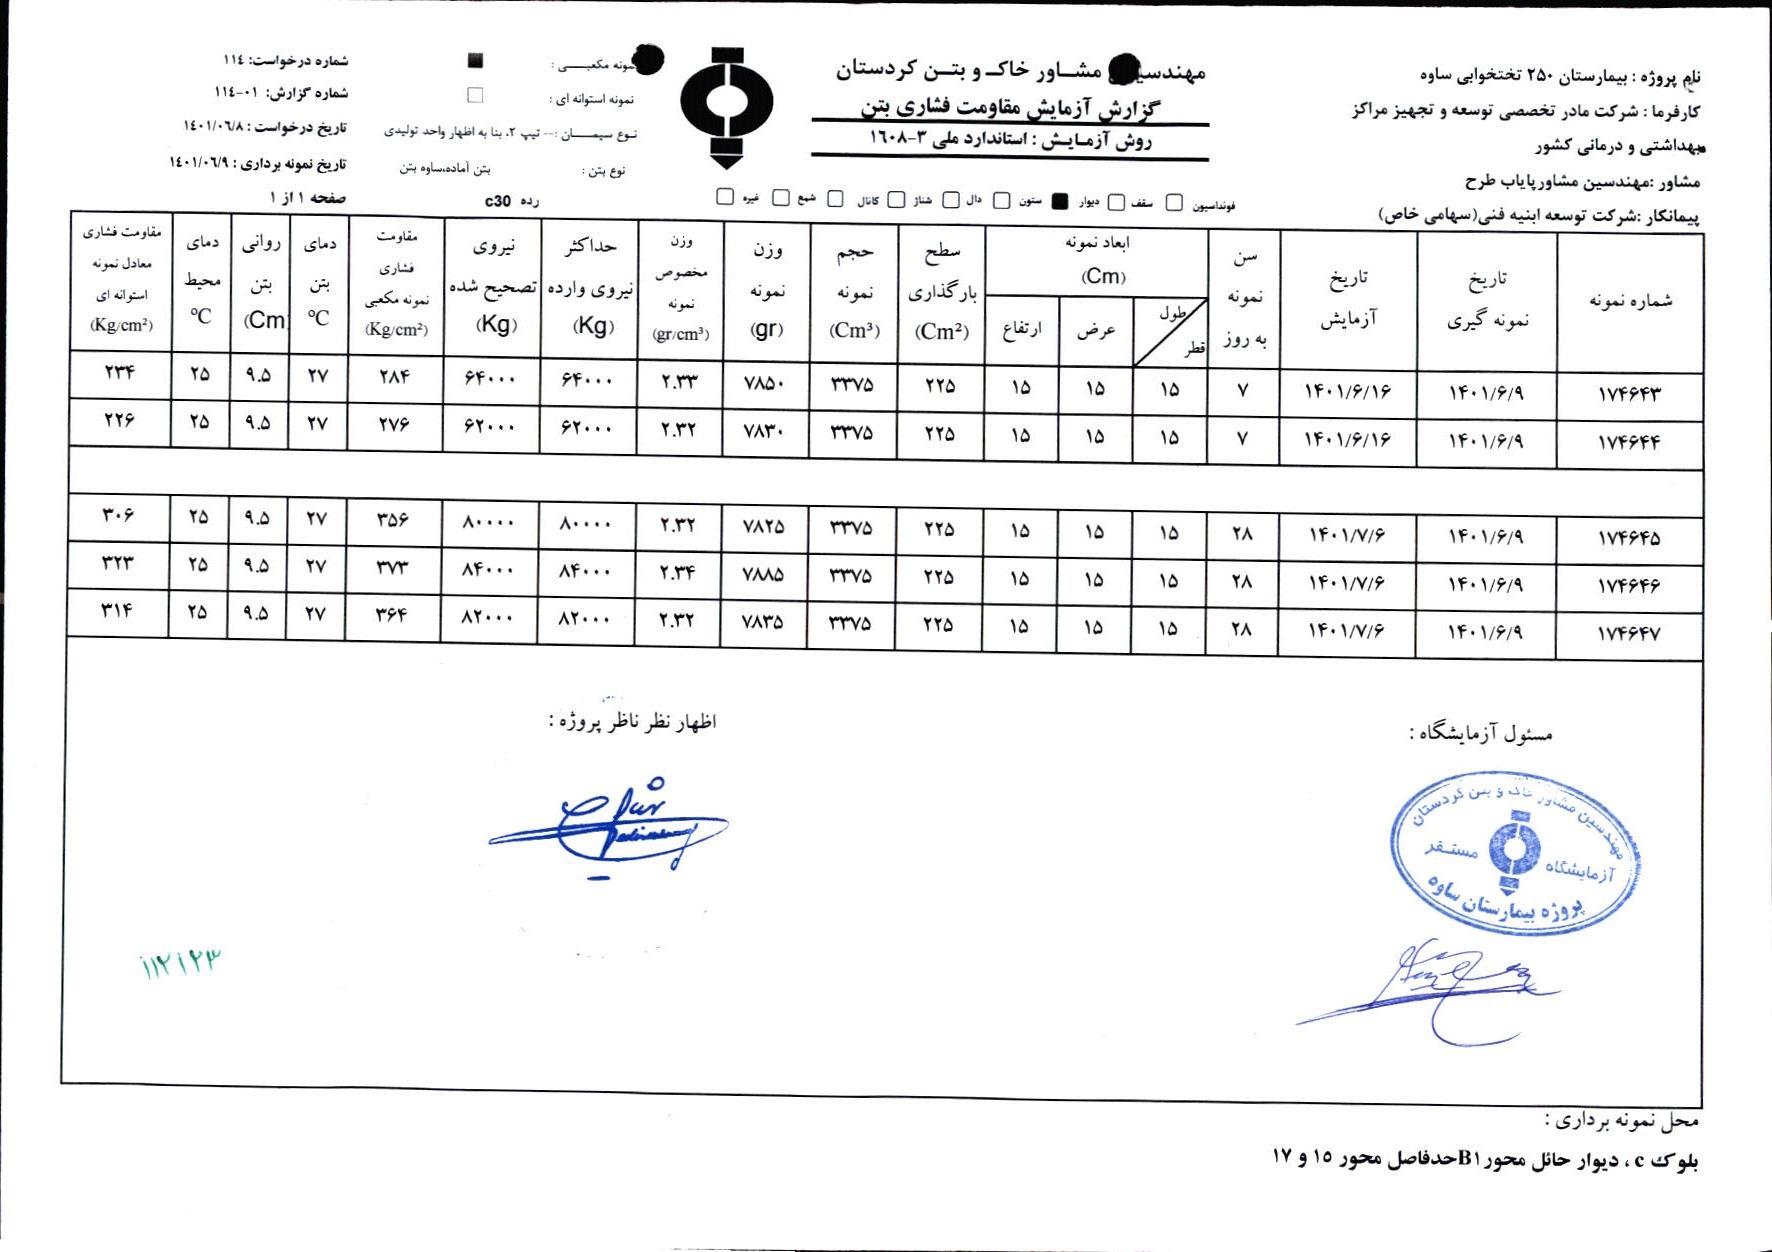 نام پروژه : بیمارستان ۲۵۰ تختخوابی ساوه
کارفرما : شرکت مادر تخصصی توسعه و تجهیز مراکز
بهداشتی و درمانی کشور
مشاور :مهندسین مشاورپایاب طرح
پیمانکار :شرکت توسعه ابنیه فنی(سهامی خاص)
مشــاور خاکـ و بتــن کردستان
گزارش آزمایش مقاومت فشاری بتن
روش آزمـایـش : استاندارد ملی ۳-۱۶۰۸
نمونه مکعبــی : ■
نمونه استوانه ای : □
نـوع سیمــان :-- تیپ ۲، بنا به اظهار واحد تولیدی
نوع بتن : بتن آماده،ساوه بتن
رده c30
شماره درخواست: ۱۱۴
شماره گزارش: ۰۱-۱۱۴
تاریخ درخواست : ۱۴۰۱/۰۶/۸
تاریخ نمونه برداری : ۱۴۰۱/۰۶/۹
صفحه ۱ از ۱
فونداسیون □ سقف □ دیوار ■ ستون □ دال □ شناژ □ کانال □ شمع □ غیره □
شماره نمونه | تاریخ نمونه گیری | تاریخ آزمایش | سن نمونه به روز | ابعاد نمونه (Cm) طول قطر | عرض | ارتفاع | سطح بارگذاری (Cm²) | حجم نمونه (Cm³) | وزن نمونه (gr) | وزن مخصوص نمونه (gr/cm³) | حداکثر نیروی وارده (Kg) | نیروی تصحیح شده (Kg) | مقاومت فشاری نمونه مکعبی (Kg/cm²) | دمای بتن °C | روانی بتن (Cm | دمای محیط °C | مقاومت فشاری معادل نمونه استوانه ای (Kg/cm²)
۱۷۴۶۴۳ | ۱۴۰۱/۶/۹ | ۱۴۰۱/۶/۱۶ | ۷ | ۱۵ | ۱۵ | ۱۵ | ۲۲۵ | ۳۳۷۵ | ۷۸۵۰ | ۲.۳۳ | ۶۴۰۰۰ | ۶۴۰۰۰ | ۲۸۴ | ۲۷ | ۹.۵ | ۲۵ | ۲۳۴
۱۷۴۶۴۴ | ۱۴۰۱/۶/۹ | ۱۴۰۱/۶/۱۶ | ۷ | ۱۵ | ۱۵ | ۱۵ | ۲۲۵ | ۳۳۷۵ | ۷۸۳۰ | ۲.۳۲ | ۶۲۰۰۰ | ۶۲۰۰۰ | ۲۷۶ | ۲۷ | ۹.۵ | ۲۵ | ۲۲۶
۱۷۴۶۴۵ | ۱۴۰۱/۶/۹ | ۱۴۰۱/۷/۶ | ۲۸ | ۱۵ | ۱۵ | ۱۵ | ۲۲۵ | ۳۳۷۵ | ۷۸۲۵ | ۲.۳۲ | ۸۰۰۰۰ | ۸۰۰۰۰ | ۳۵۶ | ۲۷ | ۹.۵ | ۲۵ | ۳۰۶
۱۷۴۶۴۶ | ۱۴۰۱/۶/۹ | ۱۴۰۱/۷/۶ | ۲۸ | ۱۵ | ۱۵ | ۱۵ | ۲۲۵ | ۳۳۷۵ | ۷۸۸۵ | ۲.۳۴ | ۸۴۰۰۰ | ۸۴۰۰۰ | ۳۷۳ | ۲۷ | ۹.۵ | ۲۵ | ۳۲۳
۱۷۴۶۴۷ | ۱۴۰۱/۶/۹ | ۱۴۰۱/۷/۶ | ۲۸ | ۱۵ | ۱۵ | ۱۵ | ۲۲۵ | ۳۳۷۵ | ۷۸۳۵ | ۲.۳۲ | ۸۲۰۰۰ | ۸۲۰۰۰ | ۳۶۴ | ۲۷ | ۹.۵ | ۲۵ | ۳۱۴
مسئول آزمایشگاه :
اظهار نظر ناظر پروژه :
مهندسین مشاور خاک و بتن کردستان
آزمایشگاه مستقر
پروژه بیمارستان ساوه
۱۱۲۱۲۳
محل نمونه برداری :
بلوک c ، دیوار حائل محورB۱حدفاصل محور ۱۵ و ۱۷